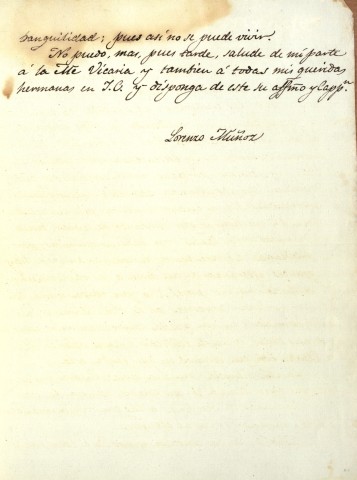 tranquilidad; pues así no se puede vivir.
No puedo, mas, pues tarde, salude de mi parte
á la Me Vicaria y tambien á todas mis queridas
hermanas en J.C. y disponga de este su affmo y Capp.n
Lorenzo Muñoz